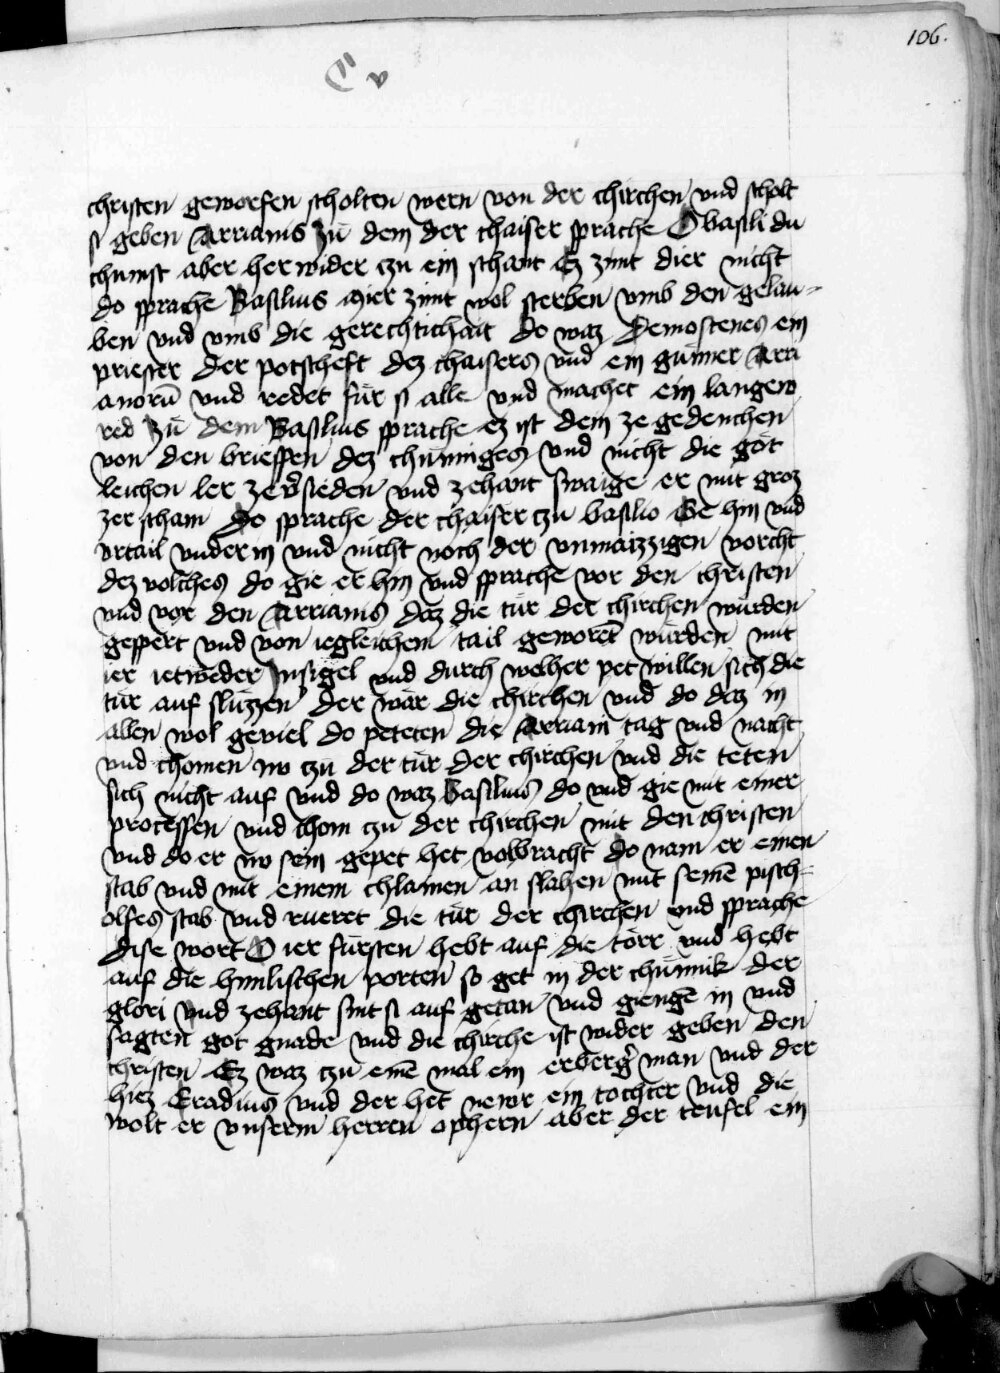 106.
C v
christen geworfen scholten wern von der chirchen vnd scholt
si geben Arrianis zu dem der chaiser sprache O basili du
chumst aber her wider czu ein schant Ez zimt dier nicht
do sprache Basilius Mier zimt wol sterben vmb den gelau-
ben vnd vmb die gerechtichait do waz Demostenes ein
priester der potscheft dez chaisers vnd ein gunner Arri
anorū vnd redet für si alle vnd machet ein langew
red Zu dem Basilius sprache ez ist dem ze gedenchen
von den brieffen dez chüniges vnd nicht die göt
leichen ler ze v̉sieden vnd zehant swaige er mit groz
zer scham Do sprache der chaiser czu basilio Ge hin vnd
vrtail vnder in vnd nicht noch der vnmäzzigen vorcht
dez volches do gie er hin vnd sprache vor den christen
vnd vor den Arrianis daz die tür der chirchen würden
gespert vnd von iegleichem tail gewaret würden mit
ier ietweder Insigel vnd durch welher pet willen sich die
tür auf sluzzen der wär die chirchen vnd do daz in
allen wol geviel do peteten die Arriani tag vnd nacht
vnd chomen nw czu der tür der chirchen vnd die teten
sich nicht auf vnd do waz basilius do vnd gie mit einer
processen vnd chom czu der chirchen mit den christen
vnd do er nw sein gepet het volbracht do nam er einen
stab vnd mit einem chlainen an slahen mit seinē pisch-
olfes stab vnd rueret die tür der chirchen vnd sprache
dise wort O ier fürsten hebt auf die törr vnd hebt
auf die himlischen porten so get in der chünnik der
glori vnd zehant sint si auf getan vnd giengē in vnd
sagten got gnade vnd die chirche ist wider geben den
christen Ez waz czu einē mal ein erberg̉ man vnd der
hiez Eradius vnd der het newr ein tochter vnd die
wolt er vnserm herren ophern aber der teufel ein